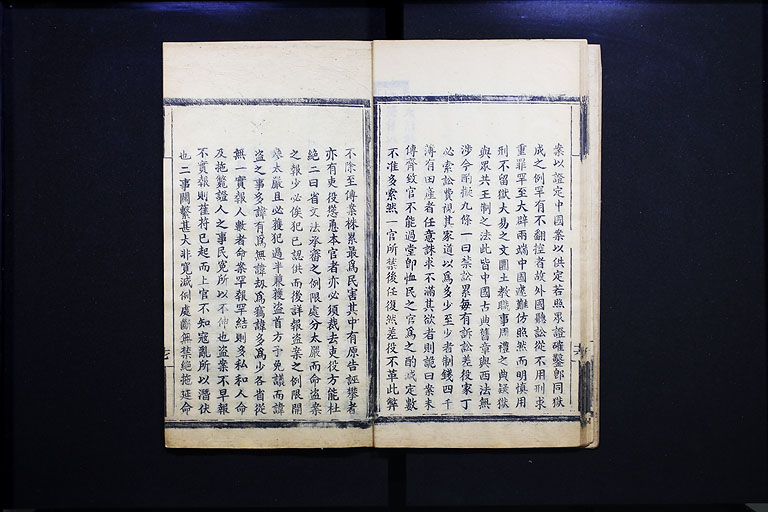 案以證定中國案以供定若照衆證確鑿卽同獄
成之例罕有不翻控者故外國聽訟從不用刑求
重罪罕至大辟兩端中國遽難仿照然而明愼用
刑不留獄大易之文圜土教職事周禮之典疑獄
與眾共王制之法此皆中國古典舊章與西法無
涉今酌擬九條一曰禁訟累每有訴訟差役家丁
必索訟費視其家道以爲多少至少者制錢四千
薄有田產者任意誅求不滿其欲者則詭曰案未
傳齊致官不能過堂卽恤民之官爲之酌減定數
不准多索然一官所禁後任復然差役不革此弊
不除至傳案株累最爲民害其中有原告誣攀者
亦有吏役慫恿本官者亦必須裁去吏役方能杜
絶二曰省文法承審之例限處分太嚴而命盜案
之報少必俟犯已認供而後詳報盜案之例限開
參太嚴且必獲犯過半兼獲盜首方予免議而諱
盜之事多諱有爲無諱劫爲竊諱多爲少各省從
無一實報人數者命案罕報罕結則多私和人命
及拖斃證人之事民冤所以不伸也盜案不早報
不實報則萑苻已起而上官不知寇亂所以潛伏
也二事關繫甚大非寛減例處斷無禁絕拖延命